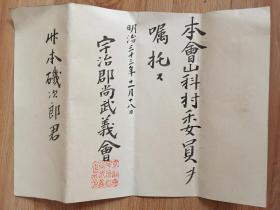 本會山科村委員ヲ
嘱托ス
明治三十三年十一月十八日
宇治郡尚武義會
竹本磯次郎君